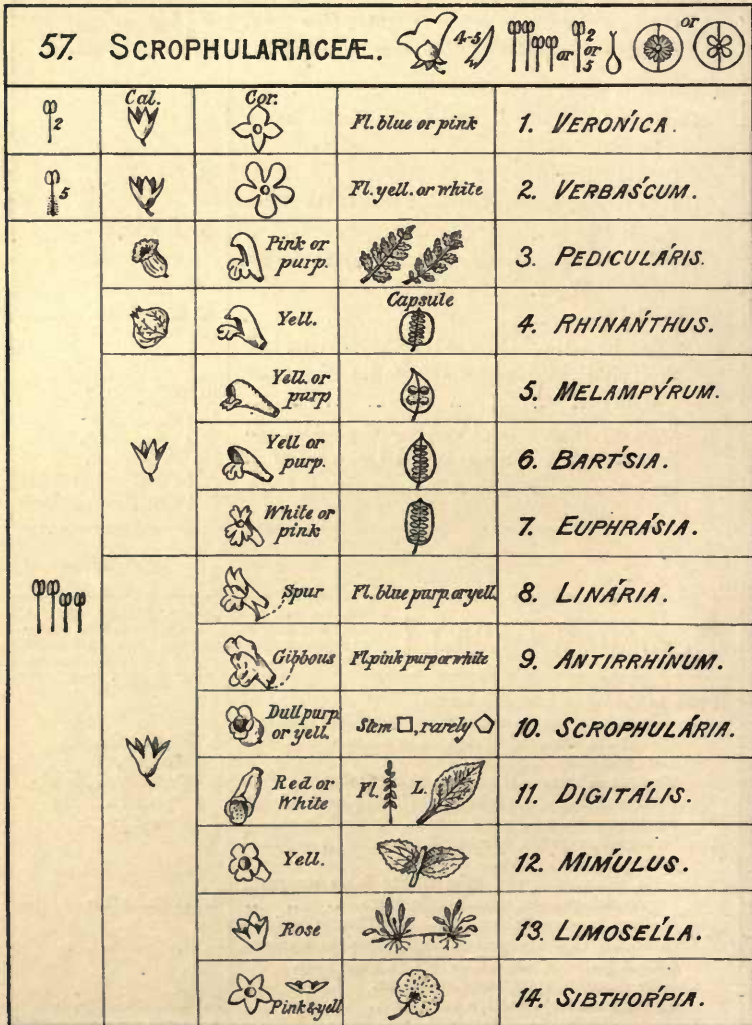 57. SCROPHULARIACEÆ. 4-5 or 2 or 5 or
2 Cal. Cor. Fl. blue or pink 1. VERONÍCA.
5 Fl. yell. or white 2. VERBAŚCUM.
Pink or
purp. 3. PEDICULÁRIS.
Yell. Capsule 4. RHINAŃTHUS.
Yell. or
purp 5. MELAMPÝRUM.
Yell or
purp. 6. BART́SIA.
White or
pink 7. EUPHRÁSIA.
Spur Fl. blue purp. or yell. 8. LINÁRIA.
Gibbous Fl. pink purp or white 9. ANTIRRHÍNUM.
Dull purp
or yell. Stem, rarely 10. SCROPHULÁRIA.
Red or
White Fl. L. 11. DIGITÁLIS.
Yell. 12. MIḾULUS.
Rose 13. LIMOSEĹLA.
Pink & yell 14. SIBTHOŔPIA.